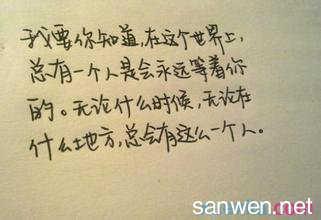 我要你知道,在这个世界上,
总有一个人是会永远等着你
的。无论什么时候,无论在
什么地方,总会有这么一个人。
sanwen.net